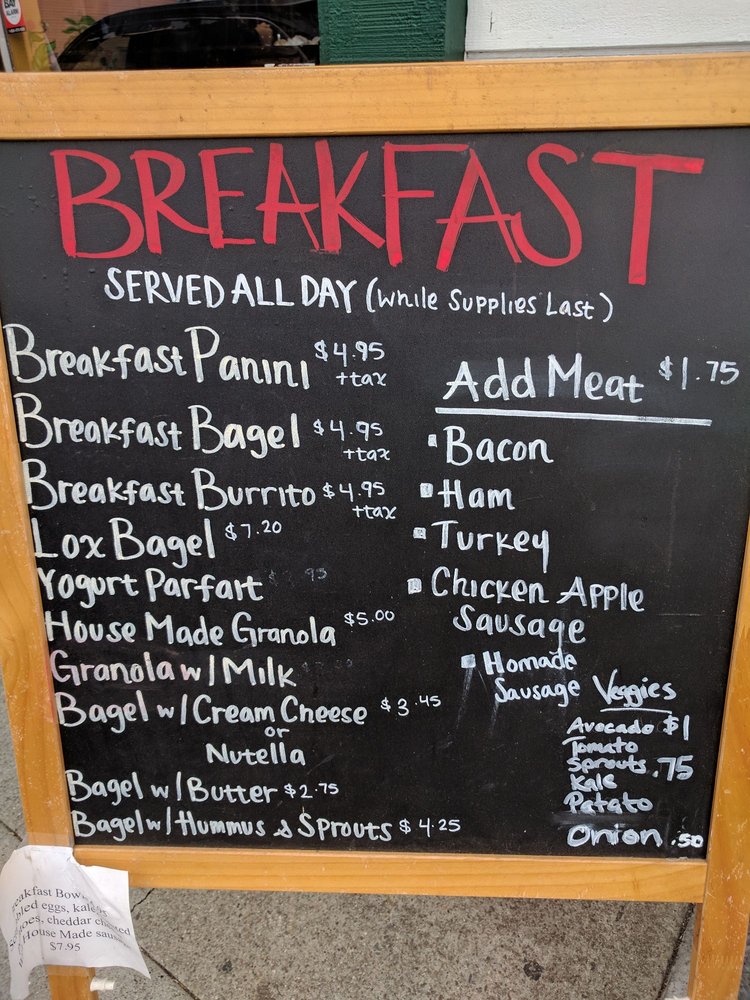 BREAKFAST
SERVED ALL DAY (While Supplies Last)
Breakfast Panini $4.95
+tax
Breakfast Bagel $4.95
+tax
Breakfast Burrito $4.95
+tax
Lox Bagel $7.20
Yogurt Parfait
House Made Granola $5.00
Granola w/ Milk
Bagel w/ Cream Cheese $3.45
or
Nutella
Bagel w/ Butter $2.75
Bagel w/ Hummus & Sprouts $4.25
Add Meat $1.75
Bacon
Ham
Turkey
Chicken Apple
Sausage
Homade
Sausage
Veggies
Avocado $1
Tomato
Sprouts .75
Kale
Patato
Onion .50
Breakfast Bow
eggs, kale
cheddar
House Made
$7.95